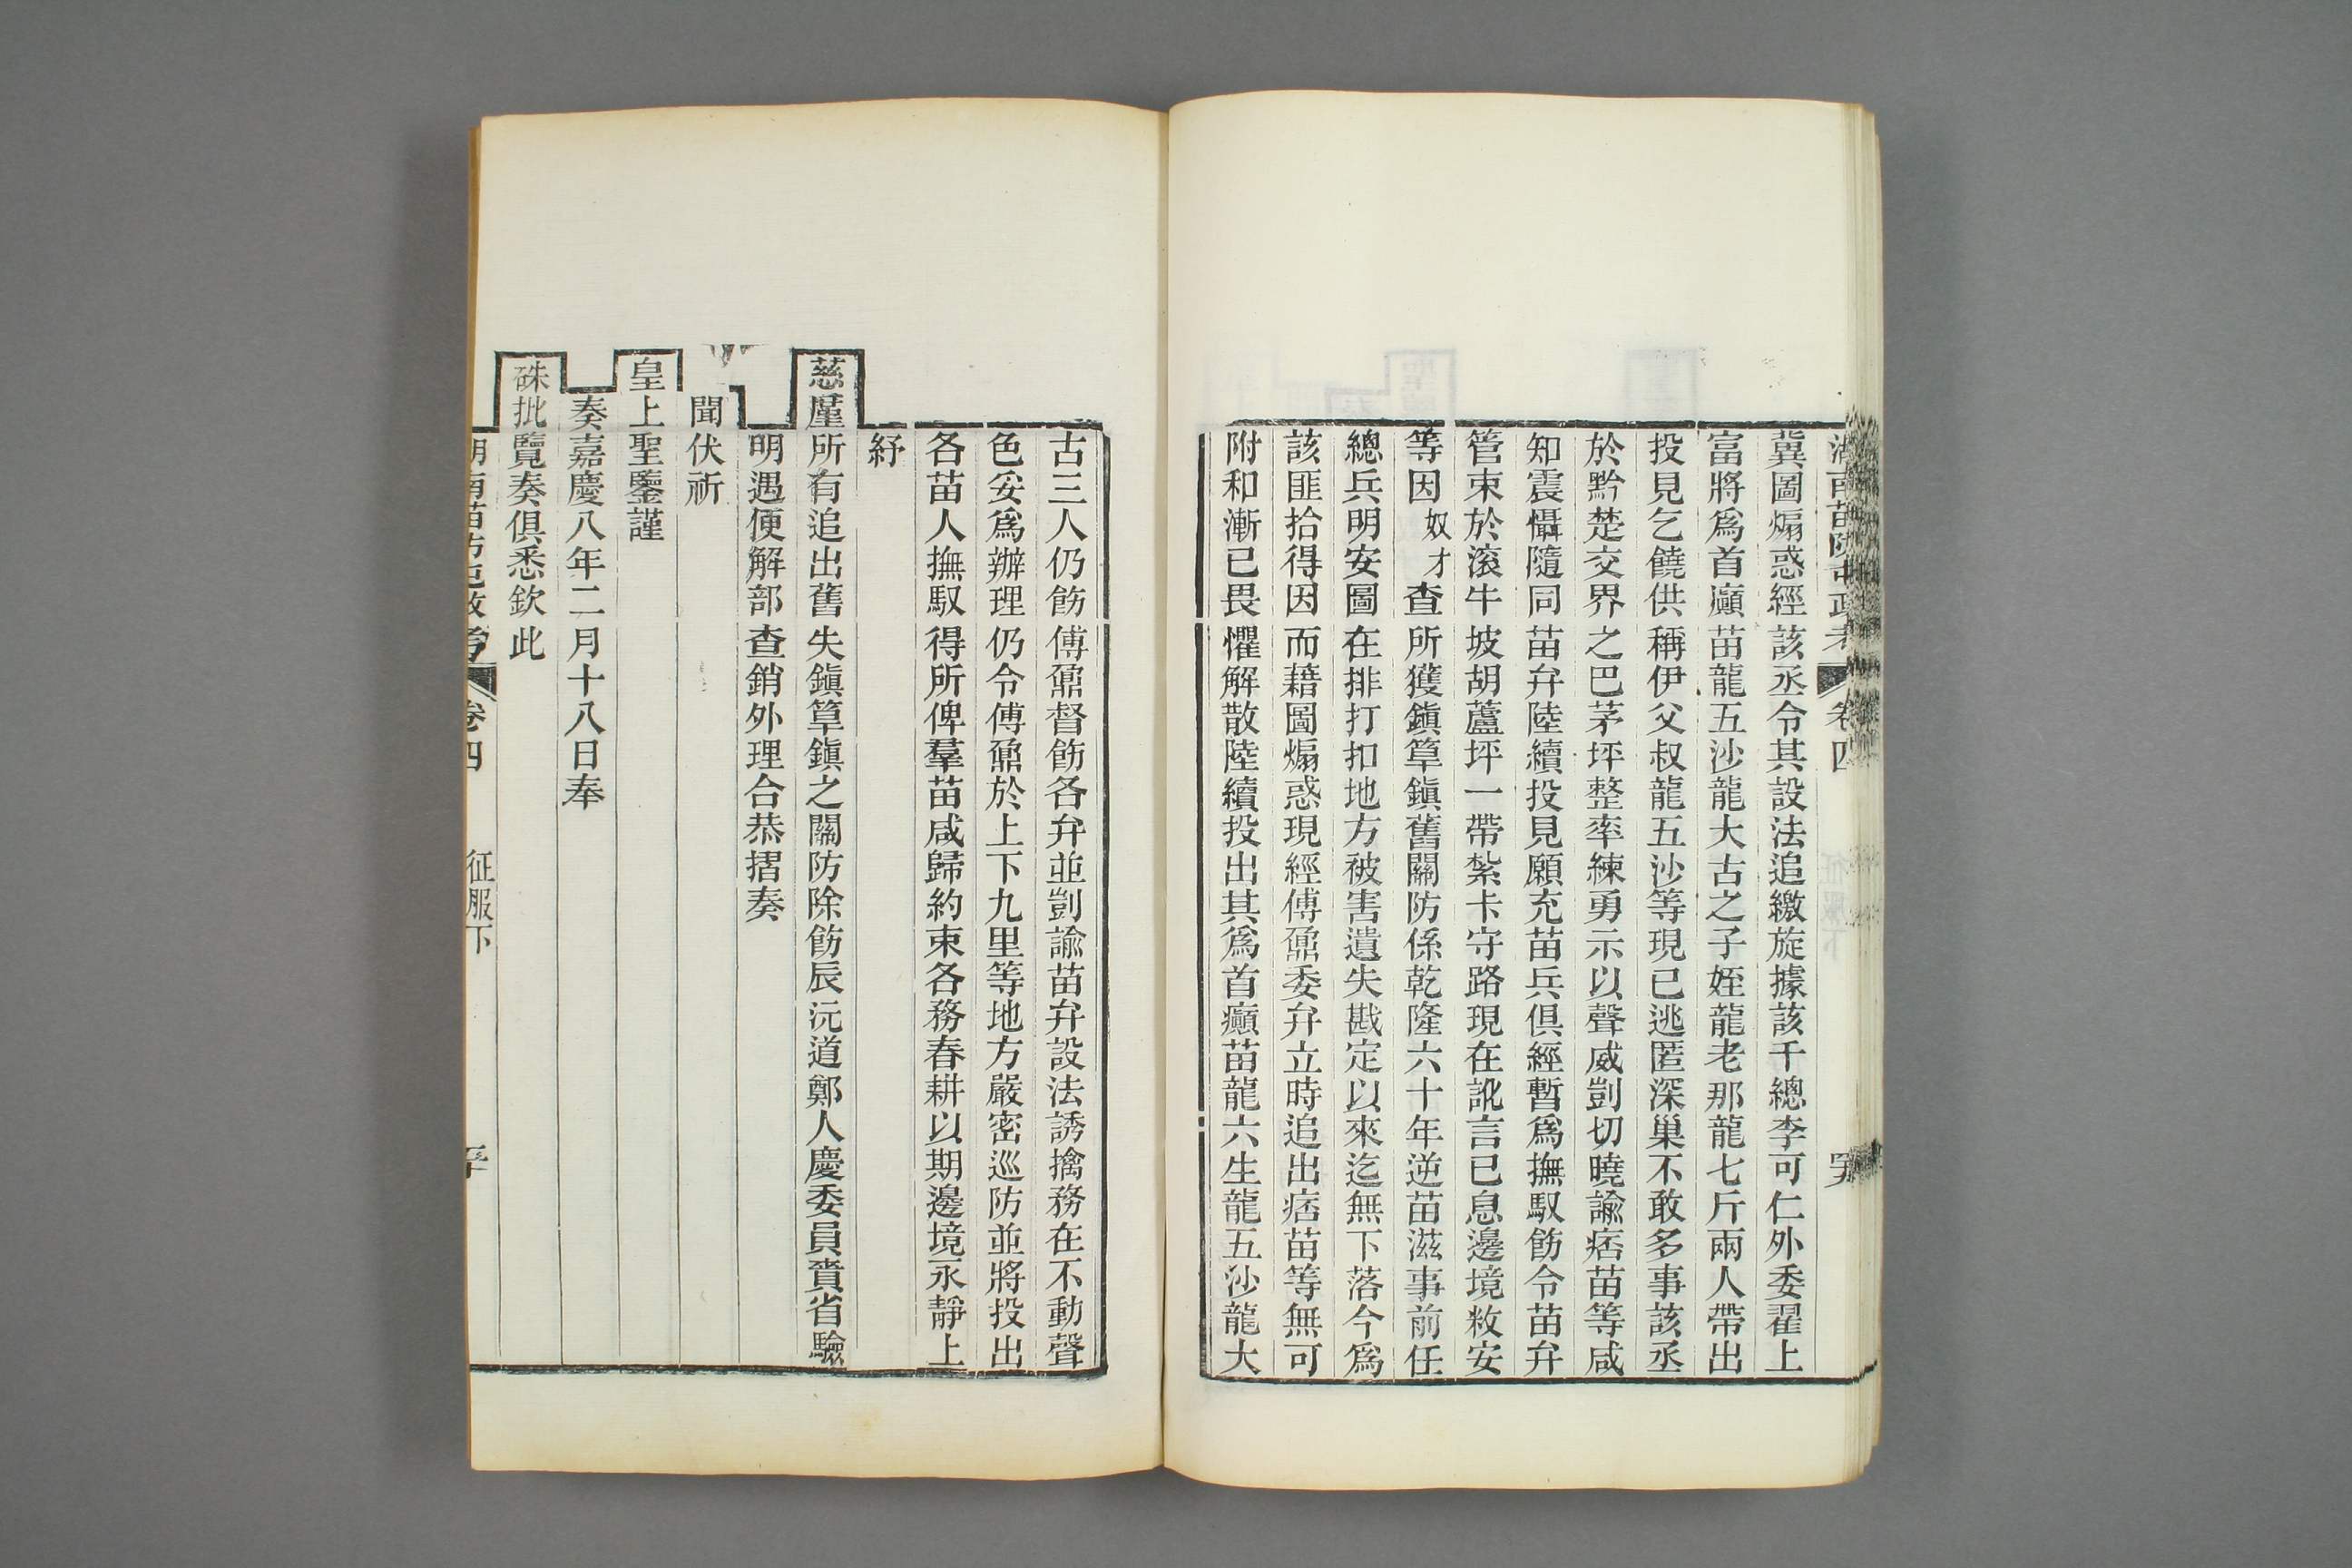 湖南苗防屯政考 卷四
冀圖煽惑經該丞令其設法追繳旋據該千總李可仁外委翟上
富將爲首癲苗龍五沙龍大古之子姪龍老那龍七斤兩人帶出
投見乞饒供稱伊父叔龍五沙等現已逃匿深巢不敢多事該丞
於黔楚交界之巴茅坪整率練勇示以聲威剴切曉諭痞苗等咸
知震懾隨同苗弁陸續投見願充苗兵俱經暫爲撫馭飭令苗弁
管束於滚牛坡胡蘆坪一帶紮卡守路現在訛言已息邊境敉安
等因奴才查所獲鎭筸鎭舊關防係乾隆六十年逆苗滋事前任
總兵明安圖在排打扣地方被害遺失戡定以來迄無下落今爲
該匪拾得因而藉圖煽惑現經傅鼐委弁立時追出痞苗等無可
附和漸已畏懼解散陸續投出其爲首癲苗龍六生龍五沙龍大
古三人仍飭傅鼐督飭各弁並剴諭苗弁設法誘擒務在不動聲
色妥爲辦理仍令傅鼐於上下九里等地方嚴密巡防並將投出
各苗人撫馭得所俾羣苗咸歸約束各務春耕以期邊境永靜上
紓
慈廑所有追出舊失鎭筸鎭之關防除飭辰沅道鄭人慶委員賫省驗
明遇便解部查銷外理合恭摺奏
聞伏祈
皇上聖鑒謹
奏嘉慶八年二月十八日奉
硃批覽奏俱悉欽此
湖南苗防屯政考 卷四 征服下